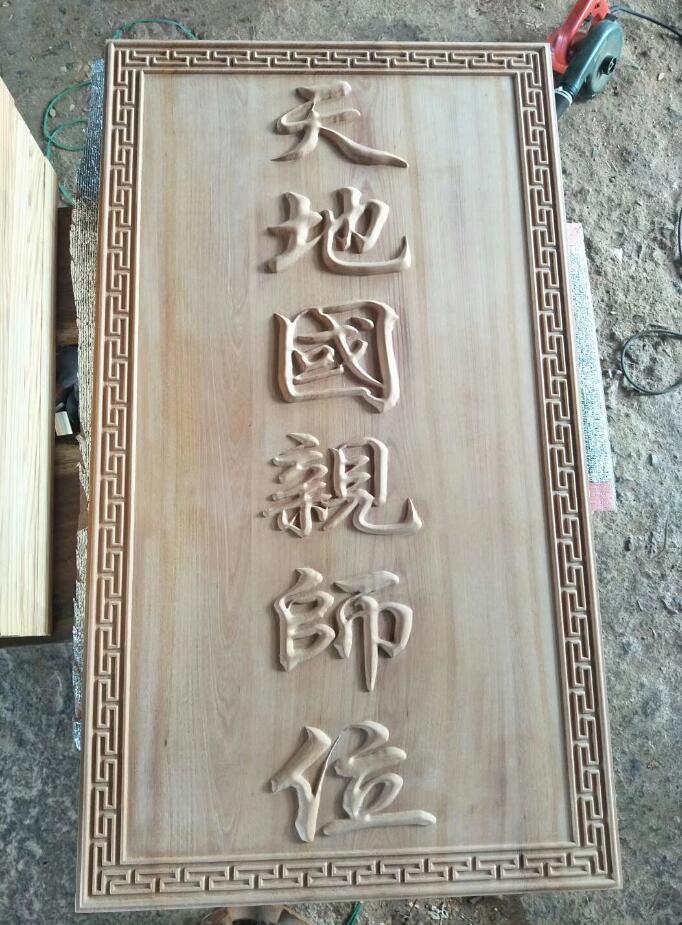 天地國親師位